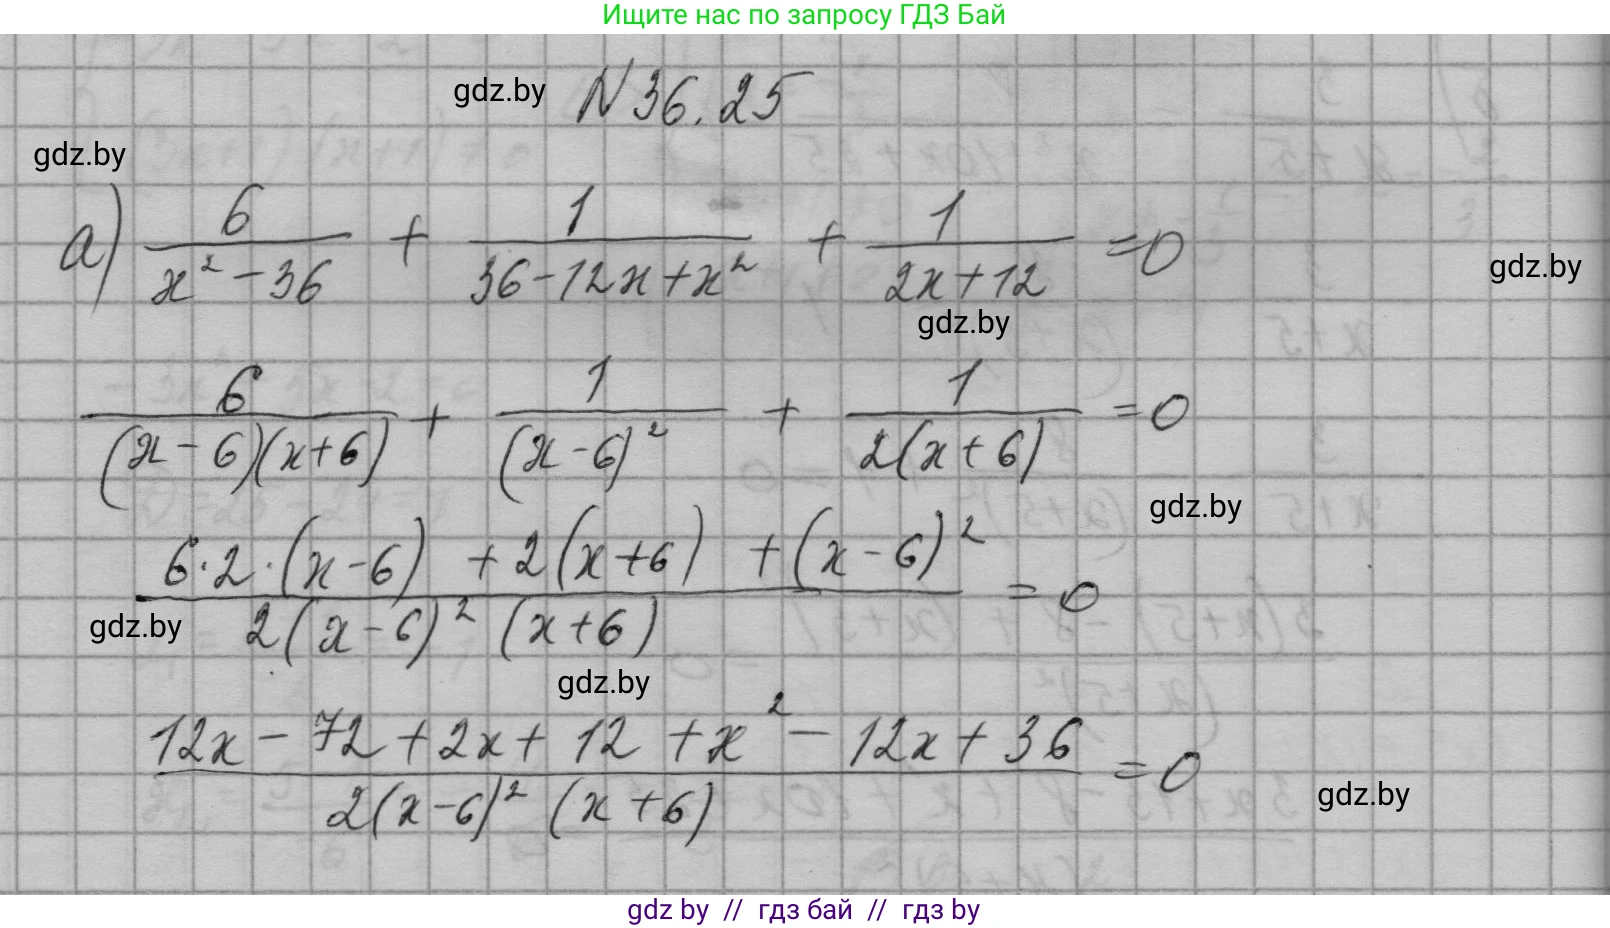 Ищите нас по запросу ГДЗ Бай
gdz.by N 36.25
gdz.by
а) 6/(x² - 36) + 1/(36 - 12x + x²) + 1/(2x + 12) = 0
gdz.by
gdz.by
6/((x - 6)(x + 6)) + 1/(x - 6)² + 1/(2(x + 6)) = 0
gdz.by
(6·2·(x - 6) + 2(x + 6) + (x - 6)²)/(2(x - 6)²(x + 6)) = 0
gdz.by
gdz.by
(12x - 72 + 2x + 12 + x² - 12x + 36)/(2(x - 6)²(x + 6)) = 0
gdz.by
gdz by // гдз бай // гдз by